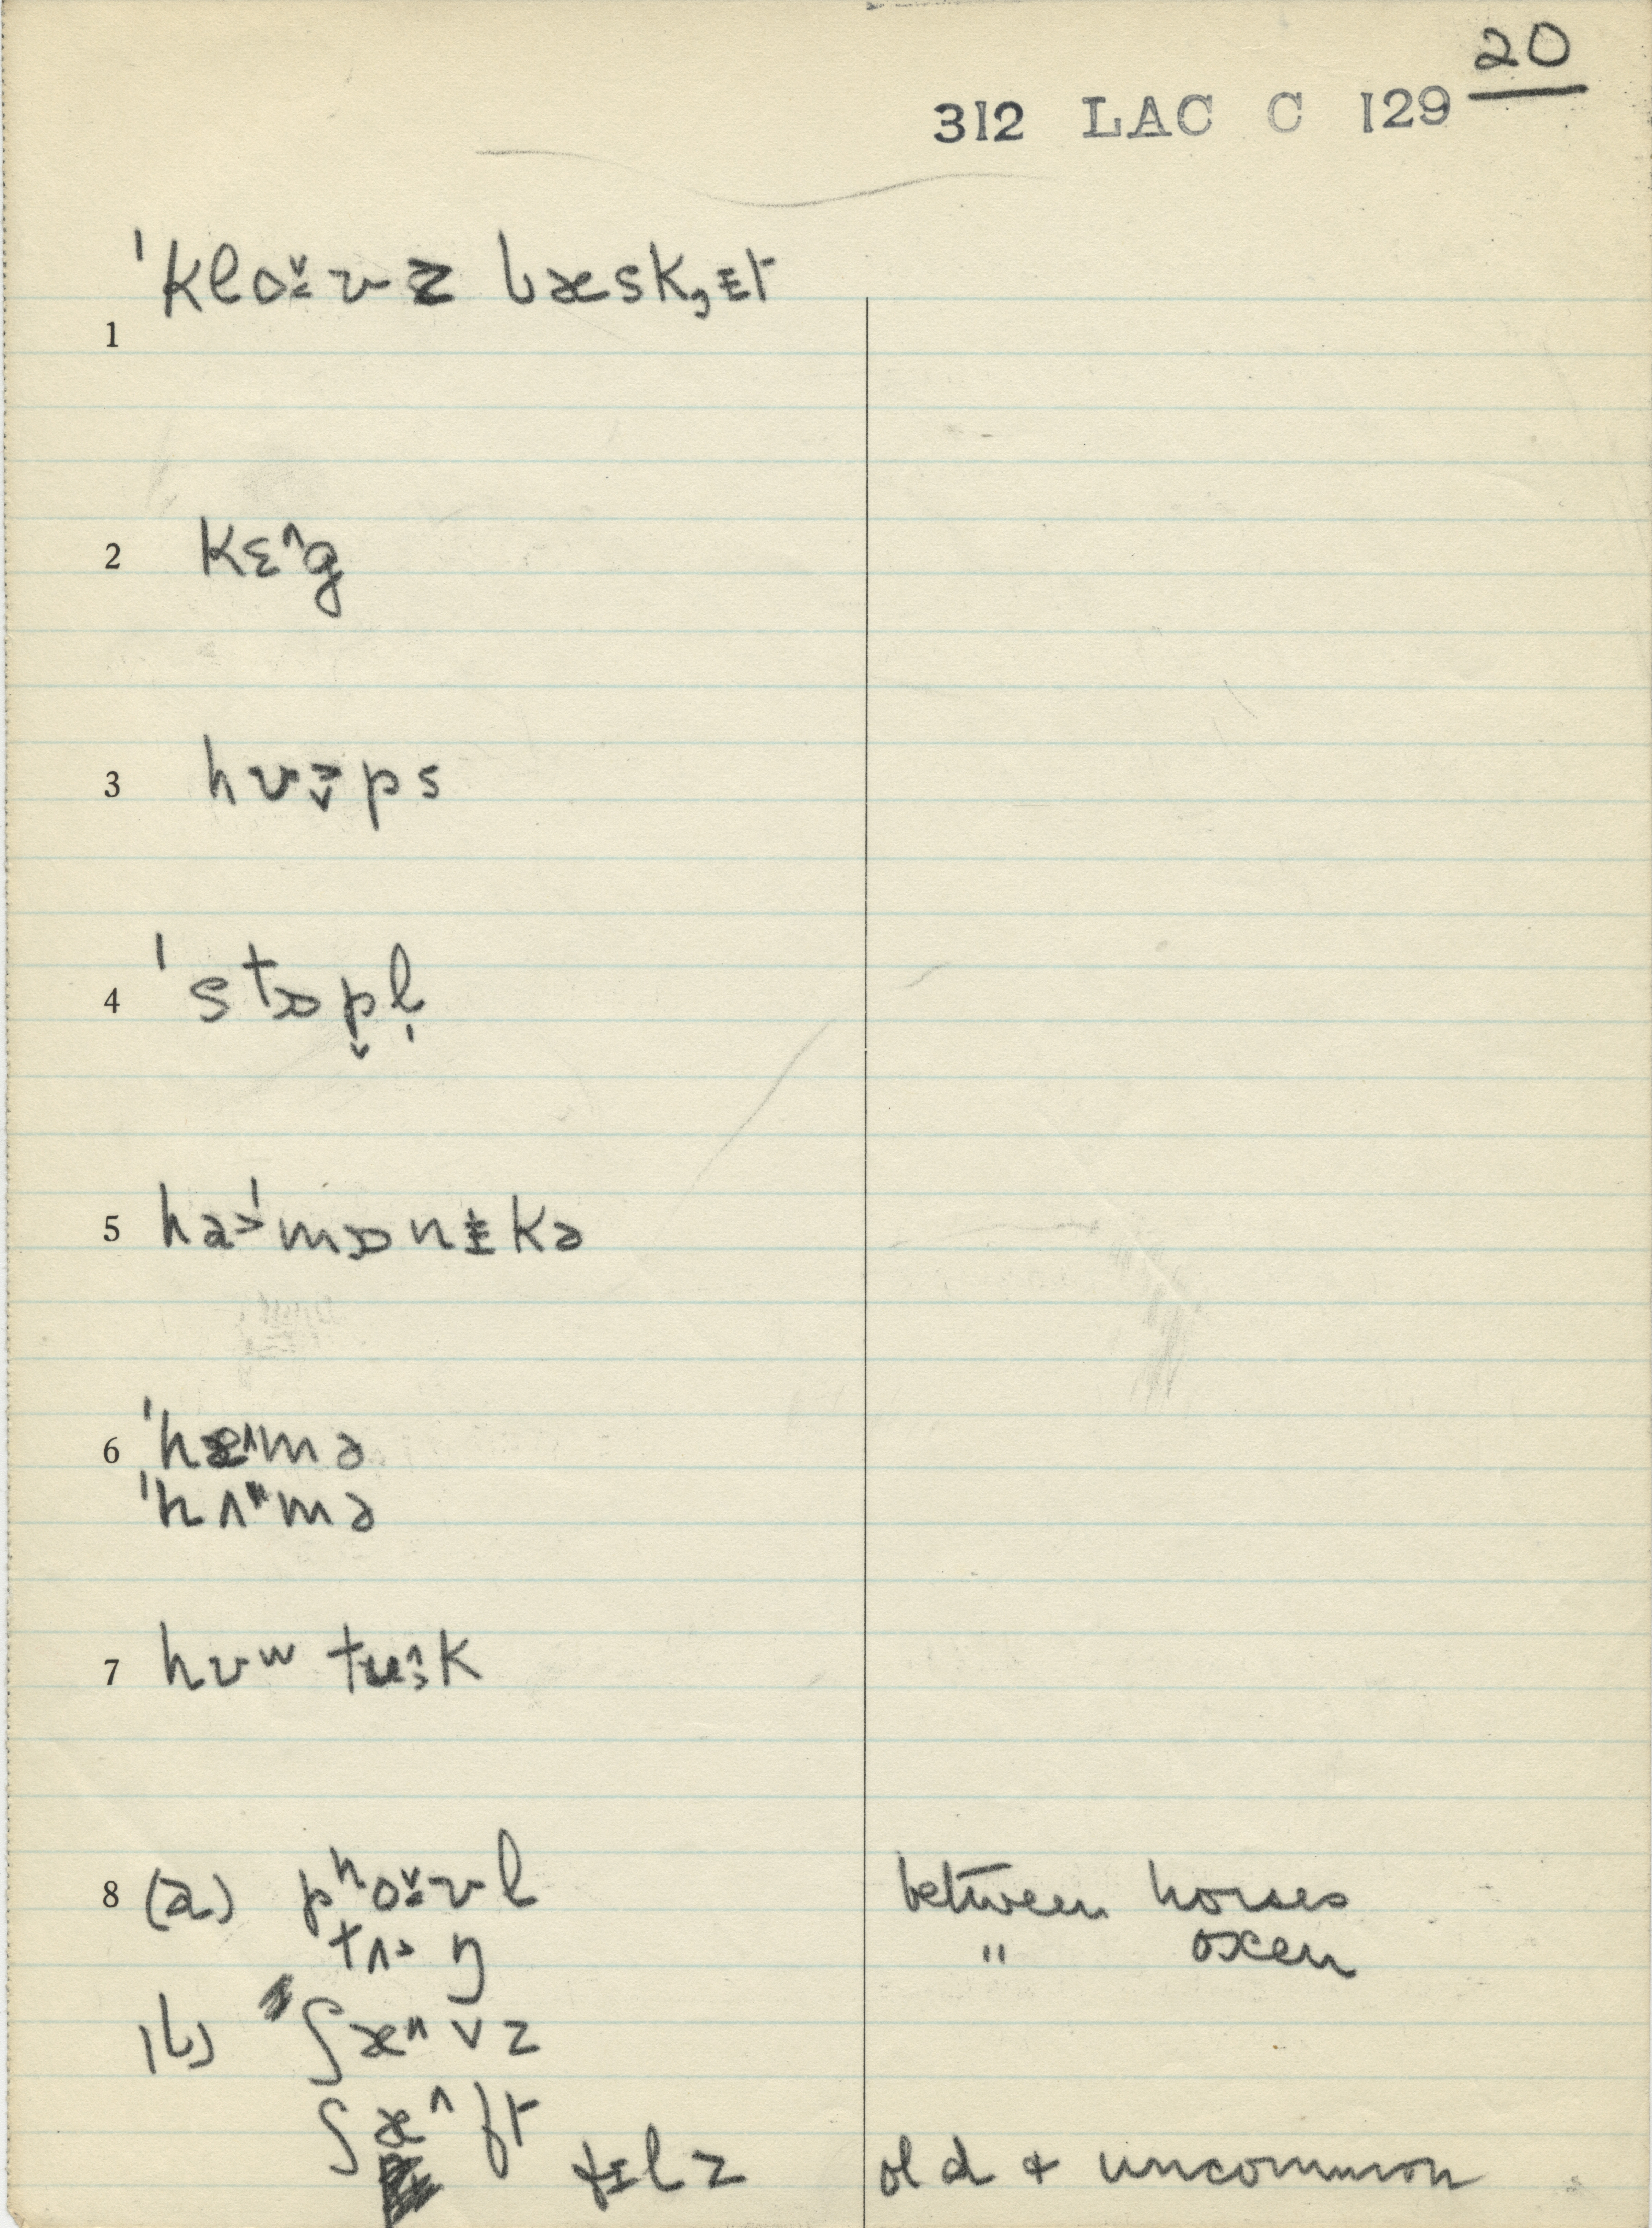 20
312 LAC C 129
1 ˈkloˇ·ʊz bæsk,ɪt
2 kɛ^g
3 hʊ>ˬps
4 ˈstɒp̬l̩
5 haˈ>mɒnɪkə
6 ˈhæ^mə
ˈhʌ"mə
7 hʊʷ tʉsk
8 (a) pʰoˇ·ʊl between horses
tʌ>ŋ " oxen
(b) ʃæ^vz
ʃæ^ft
fɪlz old + uncommon